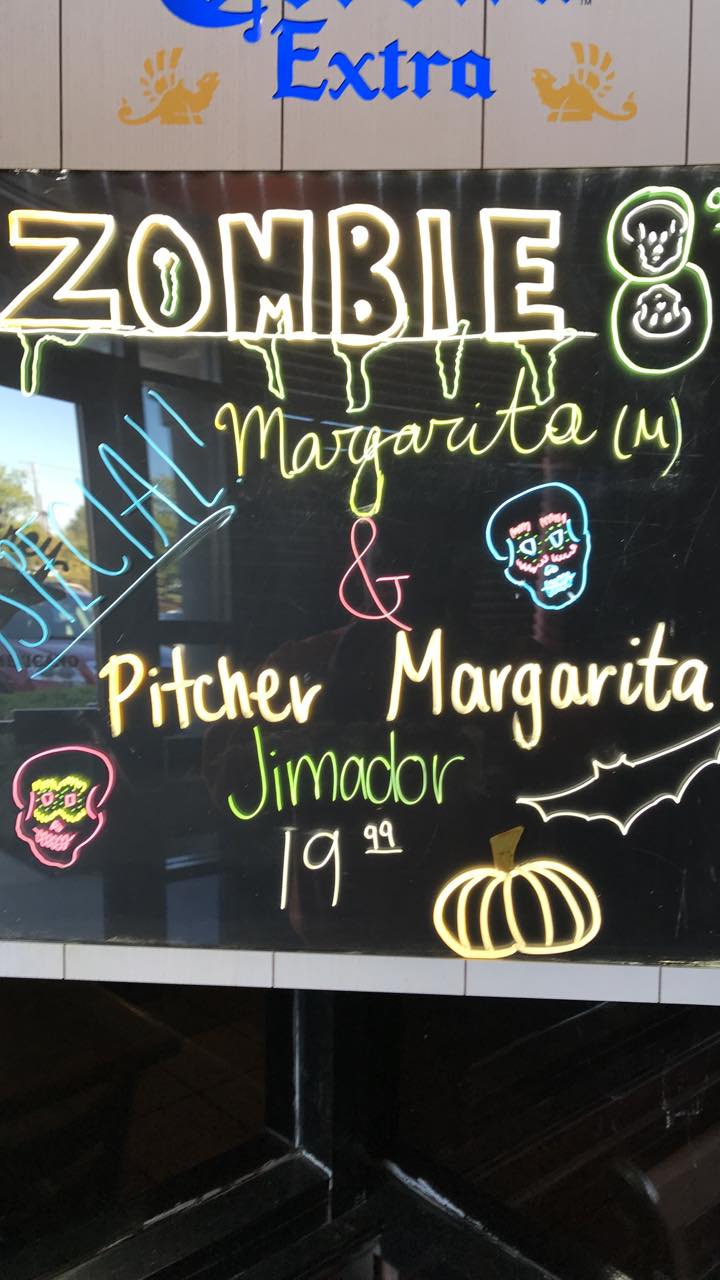 Extra
ZOMBIE 8
Margarita (M)
SPECIAL!
&
Pitcher Margarita
Jimador
19 99